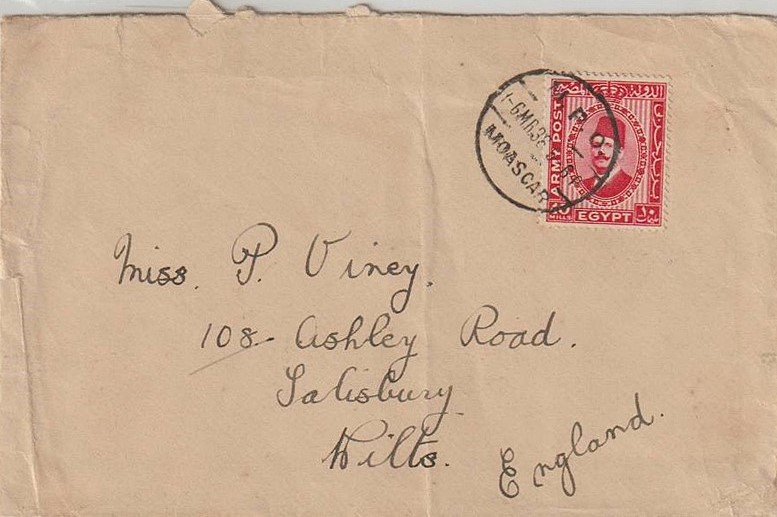 M.P.O. 1
MOASCAR
ARMY POST
10
MILLS
EGYPT
Miss. P. Viney.
108 Ashley Road.
Salisbury
Wilts.
England.